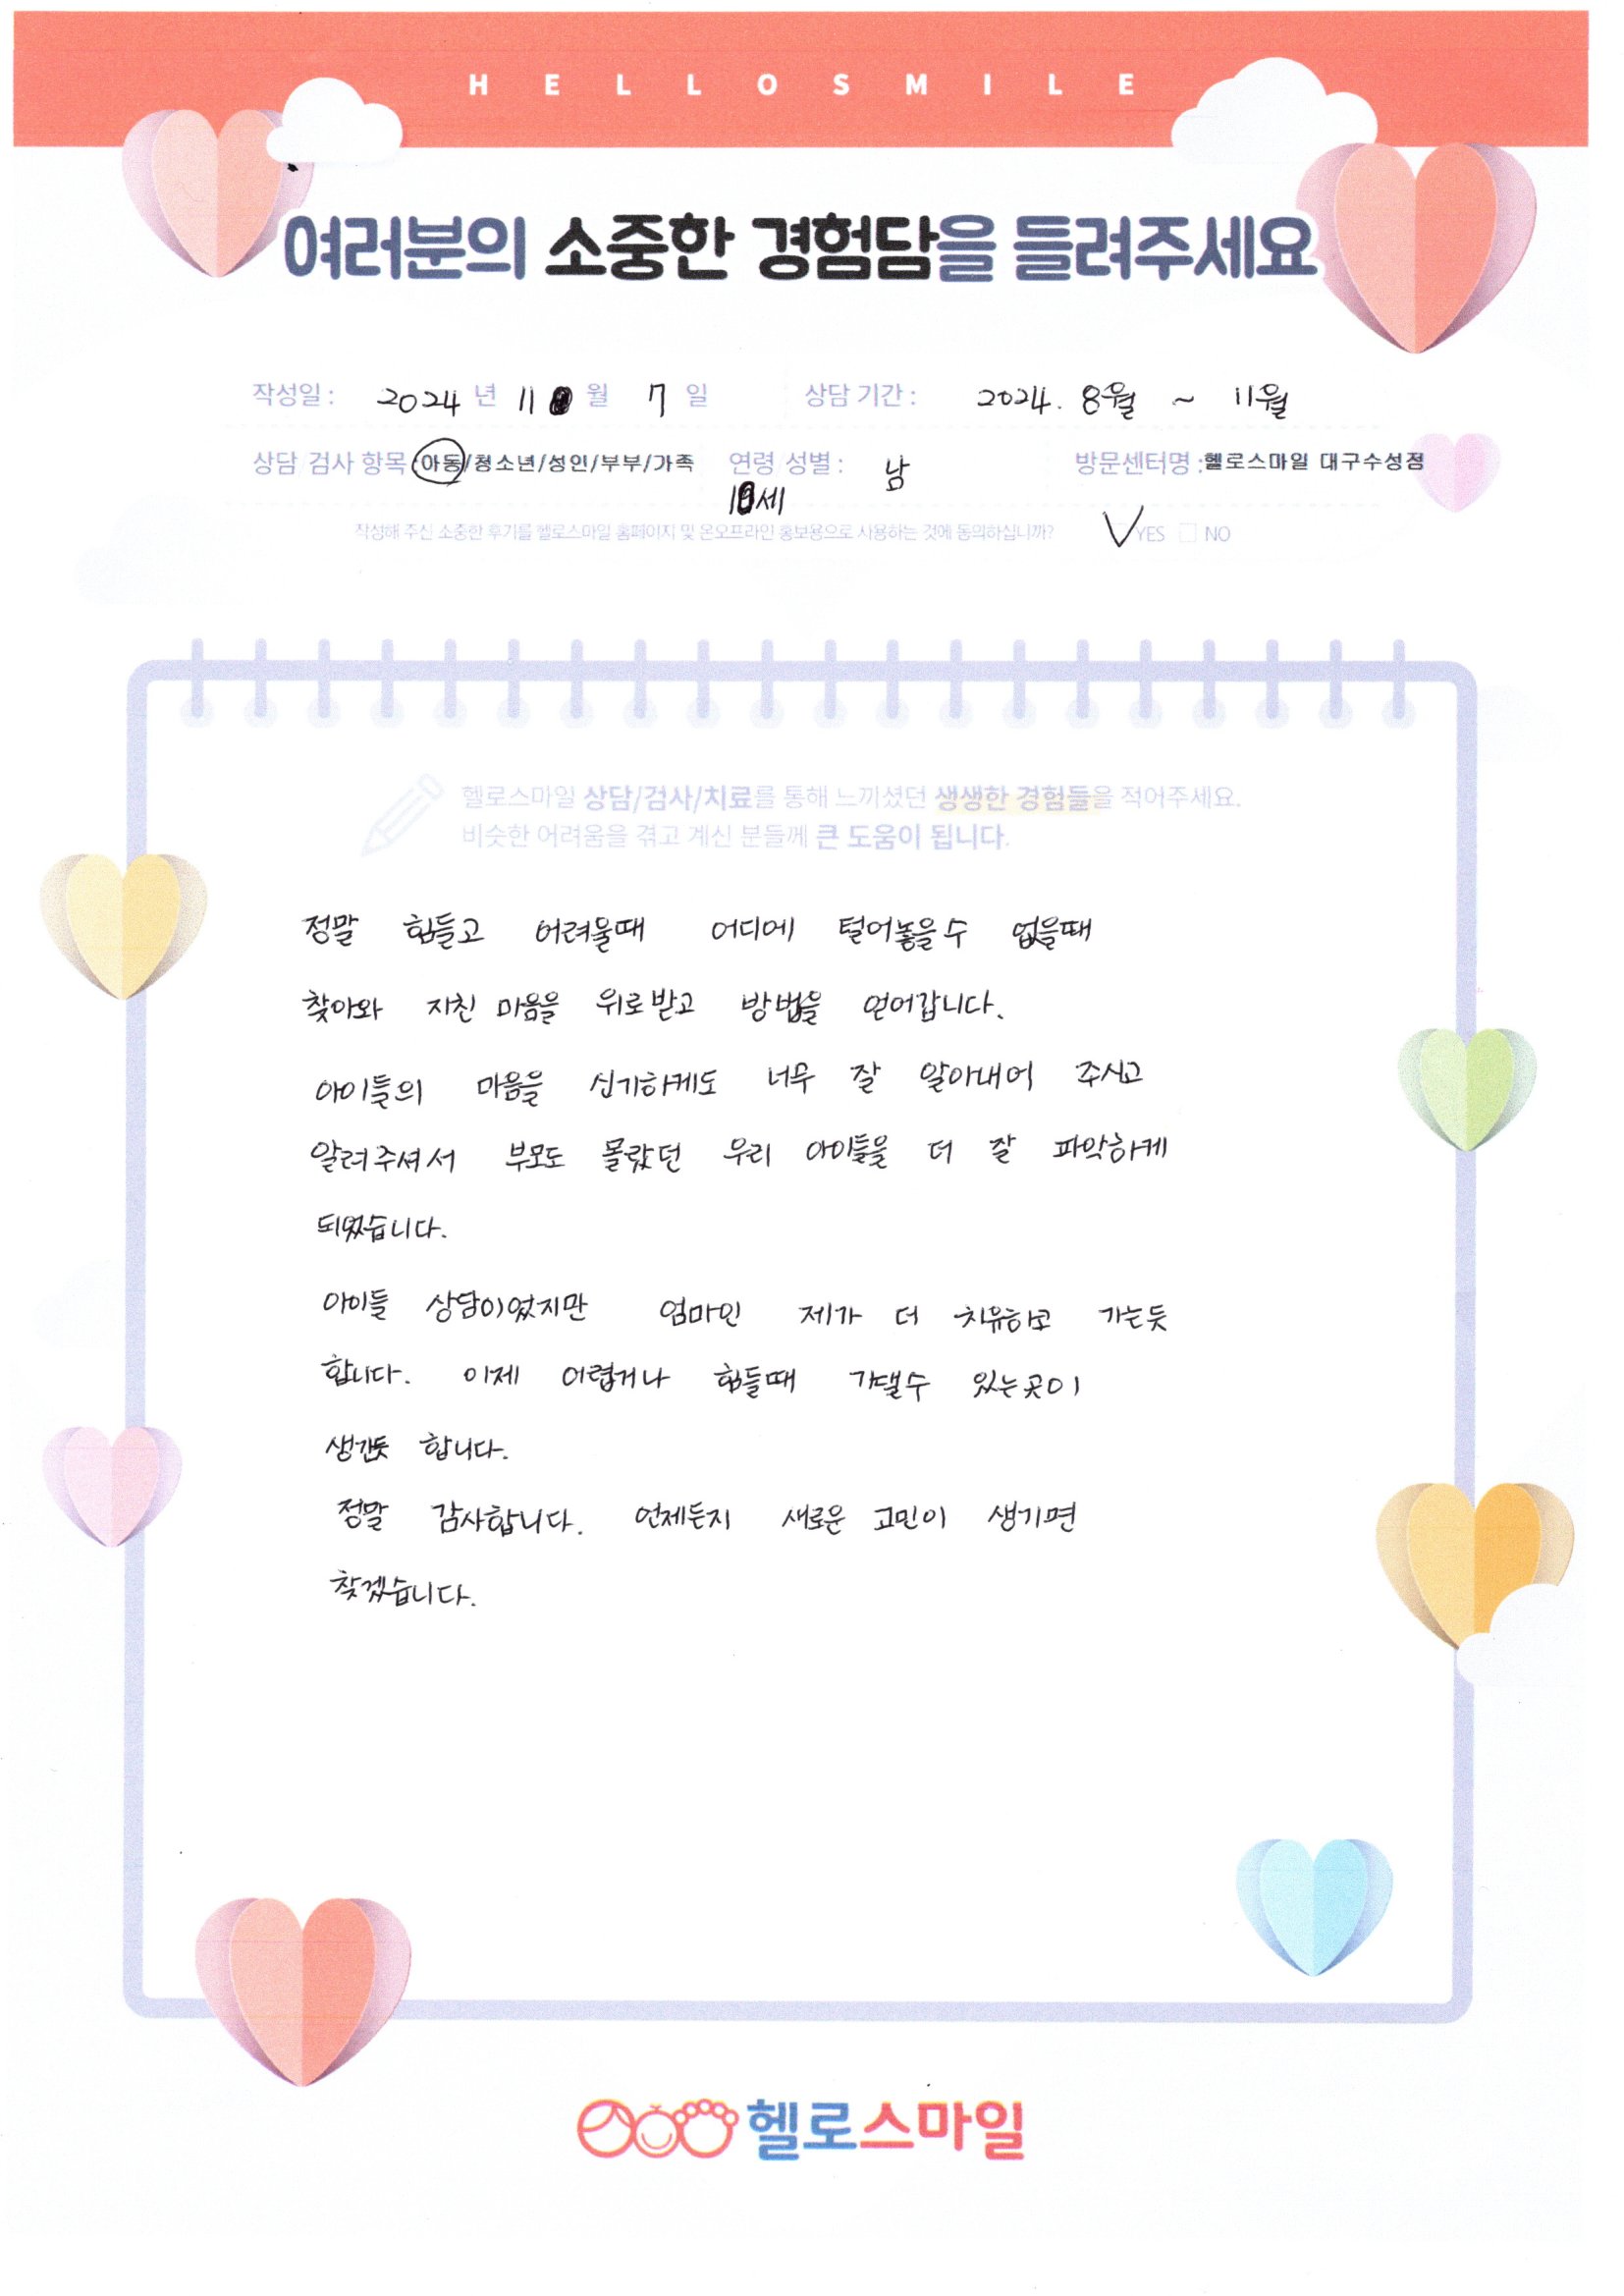 HELLOSMILE
여러분의 소중한 경험담을 들려주세요
작성일 : 2024 년 11 월 7 일 상담 기간 : 2024. 8월 ~ 11월
상담 검사 항목 : 아동/청소년/성인/부부/가족 연령 성별 : 남 방문센터명 : 헬로스마일 대구수성점
세
작성해 주신 소중한 후기를 헬로스마일 홈페이지 및 온오프라인 홍보용으로 사용하는 것에 동의하십니까? YES NO
헬로스마일 상담/검사/치료를 통해 느끼셨던 생생한 경험들을 적어주세요.
비슷한 어려움을 겪고 계신 분들께 큰 도움이 됩니다.
정말 힘들고 어려울때 어디에 털어놓을수 없을때
찾아와 지친 마음을 위로받고 방법을 얻어갑니다.
아이들의 마음을 신기하게도 너무 잘 알아내어 주시고
알려주셔서 부모도 몰랐던 우리 아이들을 더 잘 파악하게
되었습니다.
아이들 상담이었지만 엄마인 제가 더 치유하고 가는듯
합니다. 이제 어렵거나 힘들때 기댈수 있는곳이
생긴듯 합니다.
정말 감사합니다. 언제든지 새로운 고민이 생기면
찾겠습니다.
헬로스마일